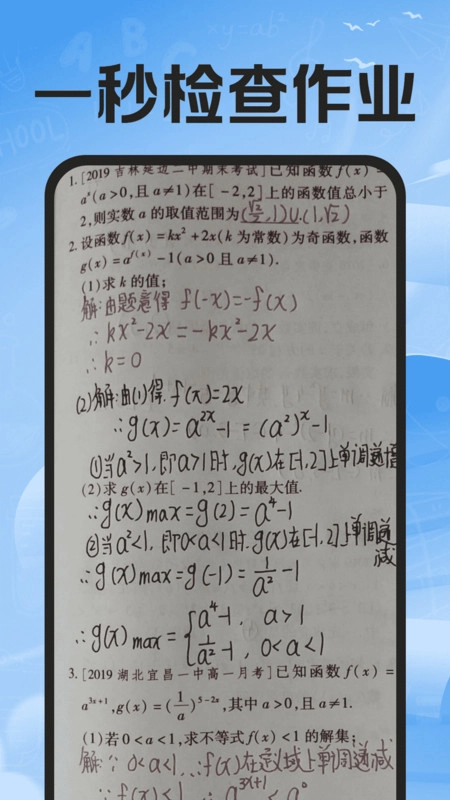 一秒检查作业
1.[2019 吉林延边二中期末考试]已知函数 f(x) =
aˣ(a>0,且 a≠1)在[-2,2]上的函数值总小于
2,则实数 a 的取值范围为(√2/2,1)∪(1,√2)
2.设函数f(x)=kx²+2x(k 为常数)为奇函数,函数
g(x)=a^{f(x)}-1(a>0 且 a≠1).
(1)求 k 的值;
解:由题意得 f(-x)=-f(x)
∴kx²-2x=-kx²-2x
∴k=0
(2)解:由(1)得.f(x)=2x
∴g(x)=a^{2x}-1=(a²)ˣ-1
①当a²>1,即a>1时,g(x)在[-1,2]上单调递增
(2)求 g(x)在[-1,2]上的最大值.
∴g(x)max=g(2)=a⁴-1
②当a²<1,即0<a<1时.g(x)在[-1,2]上单调递减
∴g(x)max=g(-1)=1/a²-1
∴g(x)max={a⁴-1, a>1
1/a²-1, 0<a<1
3.[2019 湖北宜昌一中高一月考]已知函数 f(x)=
a^{3x+1},g(x)=(1/a)^{5-2x},其中a>0,且 a≠1.
(1)若0<a<1,求不等式f(x)<1的解集;
解:∵0<a<1,∴f(x)在定义域上单调递减
∵f(x)<1 ∴a^{3x+1}<a⁰